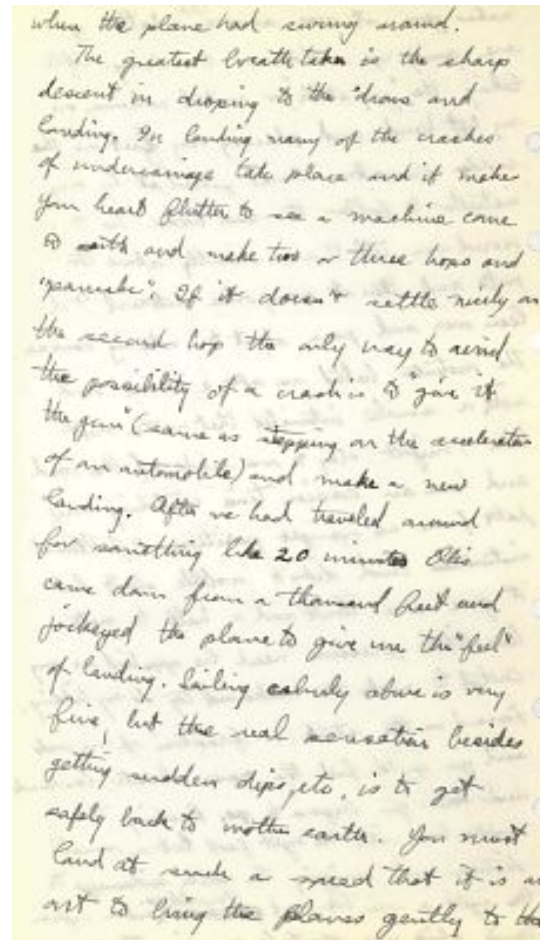 when the plane had swung around.
The greatest breath taker is the sharp
descent in droping to the "drome and
landing. In landing many of the crashes
of undercarriage take place and it makes
your heart flutter to see a machine come
to earth and make two or three hops and
"pancake". If it doesn't settle nicely on
the second hop the only way to avoid
the possibility of a crash is to "give it
the gun" (same as stepping on the accelerator
of an automobile) and make a new
landing. After we had traveled around
for something like 20 minutes Otis
came down from a thousand feet and
jockeyed the plane to give me the "feel"
of landing. Sailing calmly above is very
fine, but the real sensation besides
getting sudden dips, etc, is to get
safely back to mother earth. You must
land at such a speed that it is an
art to bring the planes gently to the